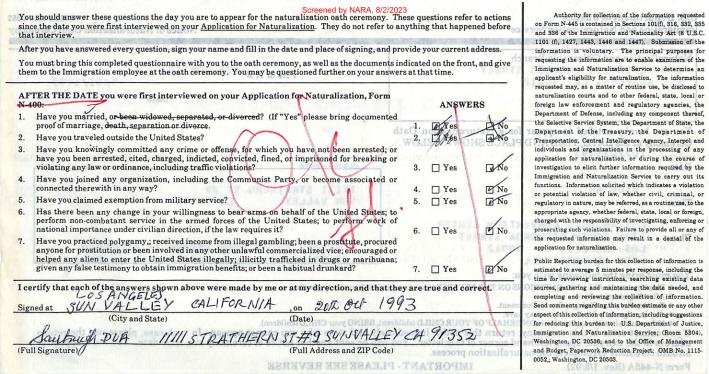 Screened by NARA, 8/2/2023
You should answer these questions the day you are to appear for the naturalization oath ceremony. These questions refer to actions
since the date you were first interviewed on your Application for Naturalization. They do not refer to anything that happened before
that interview.
After you have answered every question, sign your name and fill in the date and place of signing, and provide your current address.
You must bring this completed questionnaire with you to the oath ceremony, as well as the documents indicated on the front, and give
them to the Immigration employee at the oath ceremony. You may be questioned further on your answers at that time.
AFTER THE DATE you were first interviewed on your Application for Naturalization, Form
N-400:
ANSWERS
1. Have you married, or been widowed, separated, or divorced? (If "Yes" please bring documented
proof of marriage, death, separation or divorce.
1. Yes No
2. Have you traveled outside the United States?
2. Yes No
3. Have you knowingly committed any crime or offense, for which you have not been arrested; or
have you been arrested, cited, charged, indicted, convicted, fined, or imprisoned for breaking or
violating any law or ordinance, including traffic violations?
3. Yes No
4. Have you joined any organization, including the Communist Party, or become associated or
connected therewith in any way?
4. Yes No
5. Have you claimed exemption from military service?
5. Yes No
6. Has there been any change in your willingness to bear arms on behalf of the United States; to
perform non-combatant service in the armed forces of the United States; to perform work of
national importance under civilian direction, if the law requires it?
6. Yes No
7. Have you practiced polygamy,; received income from illegal gambling; been a prostitute, procured
anyone for prostitution or been involved in any other unlawful commercialized vice; encouraged or
helped any alien to enter the United States illegally; illicitly trafficked in drugs or marihuana;
given any false testimony to obtain immigration benefits; or been a habitual drunkard?
7. Yes No
I certify that each of the answers shown above were made by me or at my direction, and that they are true and correct.
LOS ANGELES
Signed at SUN VALLEY CALIFORNIA , on 20th Oct 1993
(City and State) (Date)
DUA 11111 STRATHERN ST #2 SUNVALLEY CA 91352
(Full Signature) (Full Address and ZIP Code)
Authority for collection of the information requested
on Form N-445 is contained in Sections 101(f), 316, 332, 335
and 336 of the Immigration and Nationality Act (8 U.S.C.
1101 (f), 1427, 1443, 1446 and 1447). Submission of the
information is voluntary. The principal purposes for
requesting the information are to enable examiners of the
Immigration and Naturalization Service to determine an
applicant's eligibility for naturalization. The information
requested may, as a matter of routine use, be disclosed to
naturalization courts and to other federal, state, local or
foreign law enforcement and regulatory agencies, the
Department of Defense, including any component thereof,
the Selective Service System, the Department of State, the
Department of the Treasury, the Department of
Transportation, Central Intelligence Agency, Interpol and
individuals and organizations in the processing of any
application for naturalization, or during the course of
investigation to elicit further information required by the
Immigration and Naturalization Service to carry out its
functions. Information solicited which indicates a violation
or potential violation of law, whether civil, criminal, or
regulatory in nature, may be referred, as a routine use, to the
appropriate agency, whether federal, state, local or foreign,
charged with the responsibility of investigating, enforcing or
prosecuting such violations. Failure to provide all or any of
the requested information may result in a denial of the
application for naturalization.
Public Reporting burden for this collection of information is
estimated to average 5 minutes per response, including the
time for reviewing instructions, searching existing data
sources, gathering and maintaining the data needed, and
completing and reviewing the collection of information.
Send comments regarding this burden estimate or any other
aspect of this collection of information, including suggestions
for reducing this burden to: U.S. Department of Justice,
Immigration and Naturalization Service, (Room 5304),
Washington, DC 20536; and to the Office of Management
and Budget, Paperwork Reduction Project; OMB No. 1115-
0052; Washington, DC 20503.